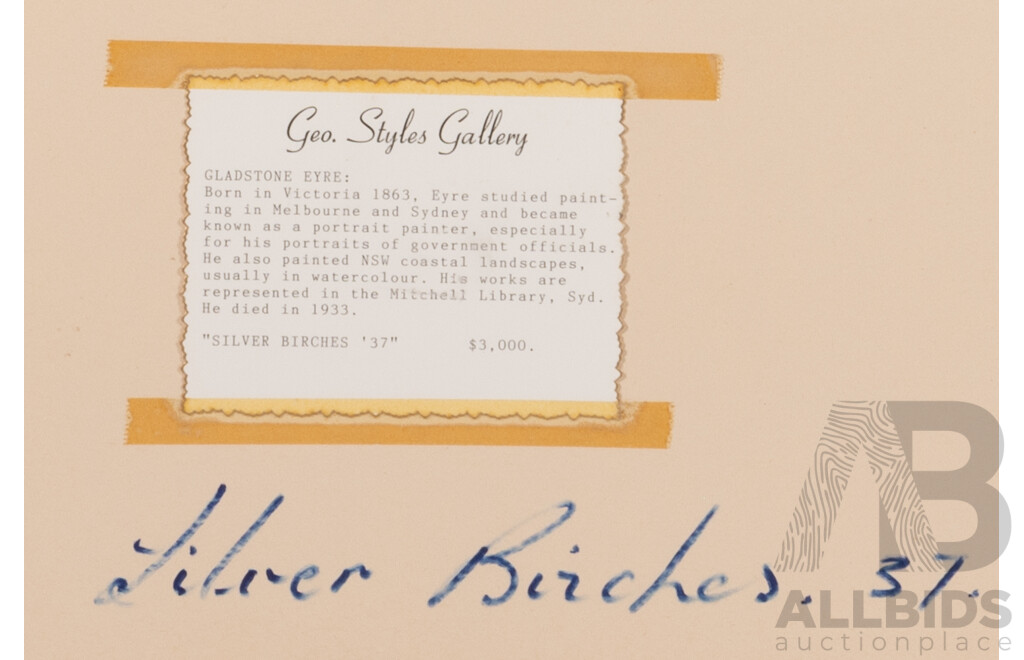 Geo. Styles Gallery
GLADSTONE EYRE:
Born in Victoria 1863, Eyre studied paint-
ing in Melbourne and Sydney and became
known as a portrait painter, especially
for his portraits of government officials.
He also painted NSW coastal landscapes,
usually in watercolour. His works are
represented in the Mitchell Library, Syd.
He died in 1933.
"SILVER BIRCHES '37" $3,000.
Silver Birches. 37.
AB
ALLBIDS
auctionplace